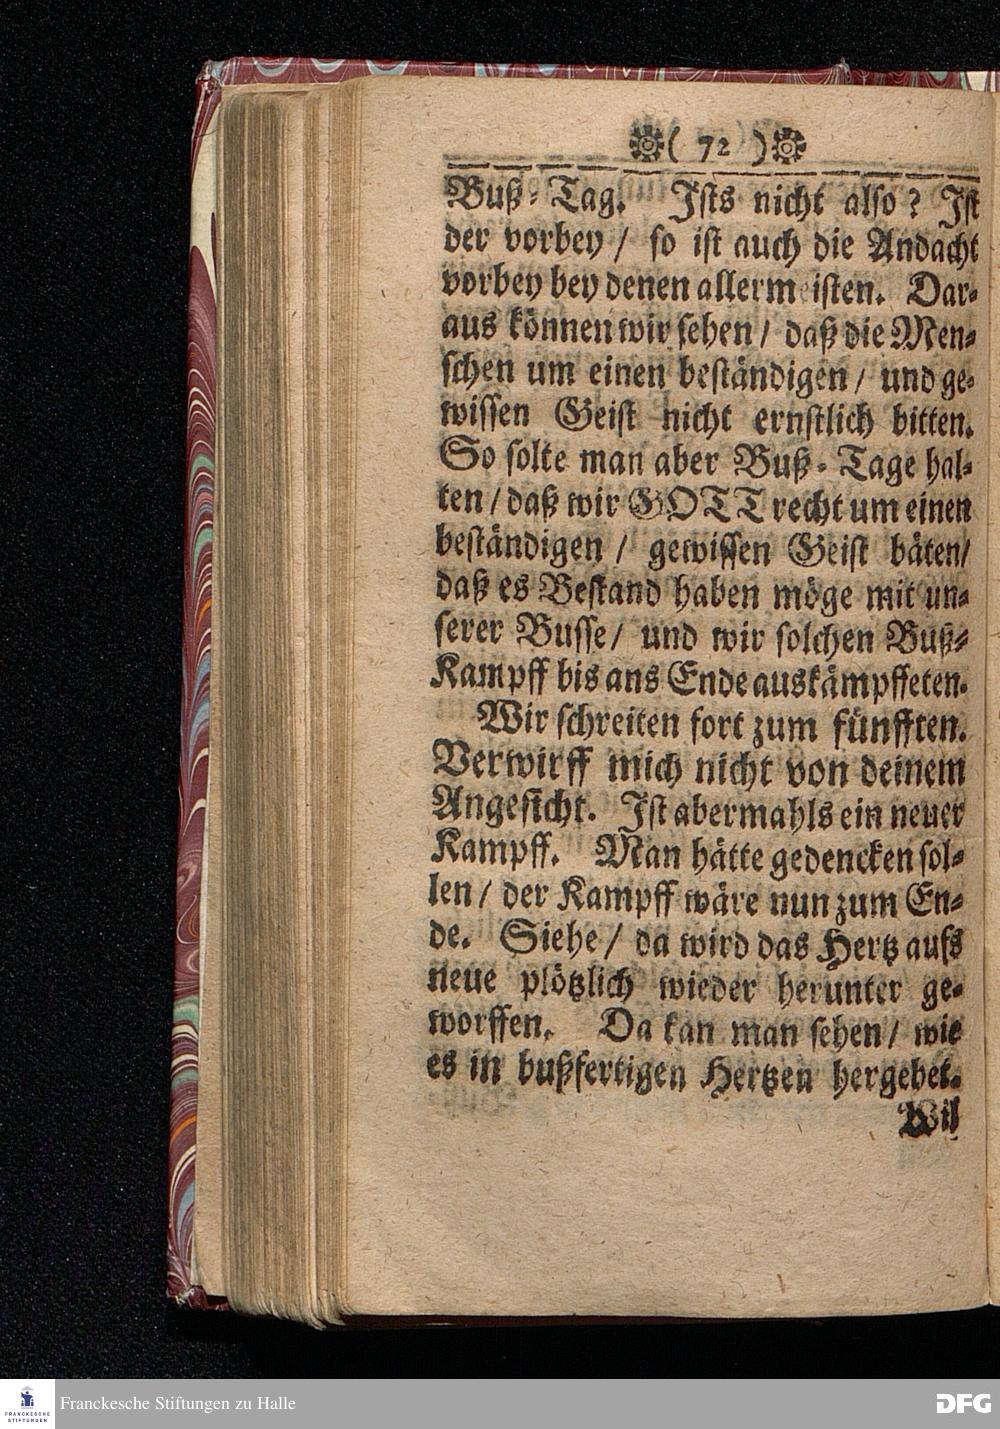 ( 72 )
Buß-Tag. Ists nicht also? Ist
der vorbey / so ist auch die Andacht
vorbey bey denen allermeisten. Dar-
aus können wir sehen / daß die Men-
schen um einen beständigen / und ge-
wissen Geist nicht ernstlich bitten.
So solte man aber Buß-Tage hal-
ten / daß wir GOTT recht um einen
beständigen / gewissen Geist bäten/
daß es Bestand haben möge mit un-
serer Busse / und wir solchen Buß-
Kampff bis ans Ende auskämpffeten.
Wir schreiten fort zum fünfften.
Verwirff mich nicht von deinem
Angesicht. Ist abermahls ein neuer
Kampff. Man hätte gedencken sol-
len / der Kampff wäre nun zum En-
de. Siehe / da wird das Hertz aufs
neue plötzlich wieder herunter ge-
worffen. Da kan man sehen / wie
es in bußfertigen Hertzen hergehet.
Wil
Franckesche Stiftungen zu Halle
FRANCKESCHE
STIFTUNGEN
DFG